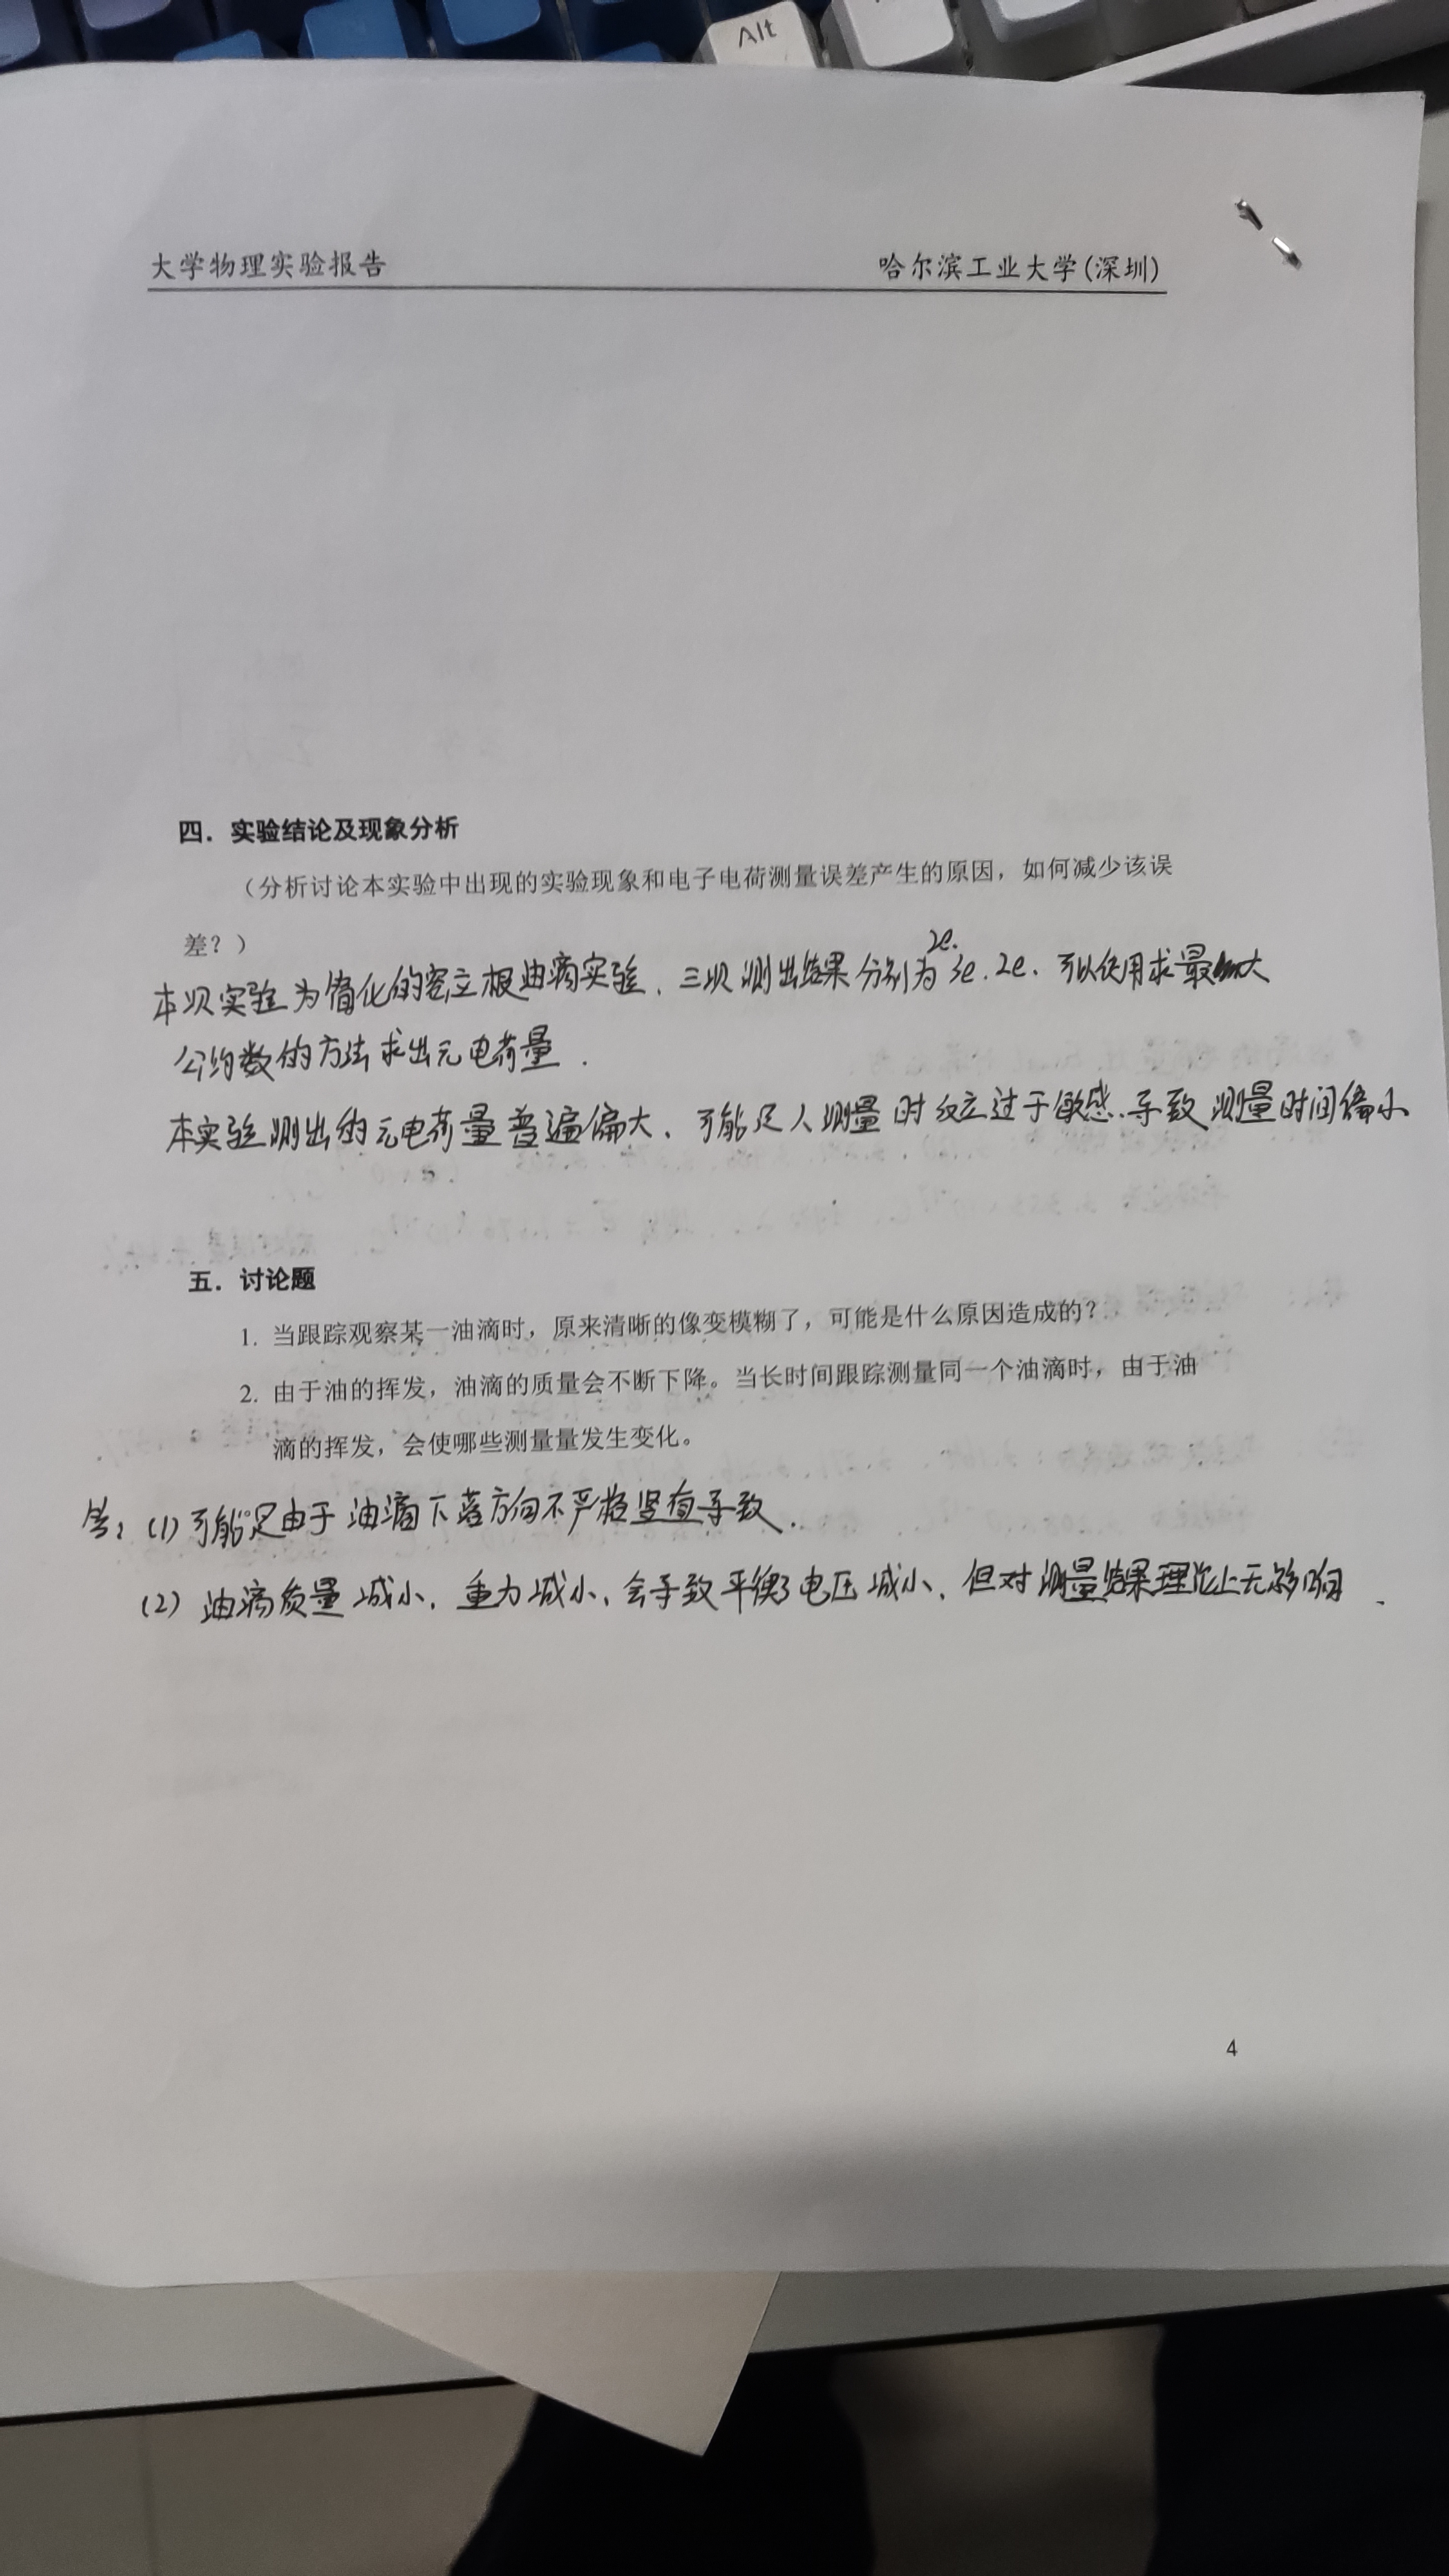 Alt
大学物理实验报告 哈尔滨工业大学(深圳)
四．实验结论及现象分析
（分析讨论本实验中出现的实验现象和电子电荷测量误差产生的原因，如何减少该误
差？）
2e.
本次实验为简化的密立根油滴实验，三次测出结果分别为 3e.2e、可以使用求最大
公约数的方法求出元电荷量．
本实验测出的元电荷量普遍偏大，可能是人测量时反应过于敏感、导致测量时间偏小
五．讨论题
1. 当跟踪观察某一油滴时，原来清晰的像变模糊了，可能是什么原因造成的？
2. 由于油的挥发，油滴的质量会不断下降。当长时间跟踪测量同一个油滴时，由于油
滴的挥发，会使哪些测量量发生变化。
答：(1)可能是由于油滴下落方向不严格竖直导致．
(2) 油滴质量减小，重力减小、会导致平衡电压减小，但对测量结果理论上无影响．
4